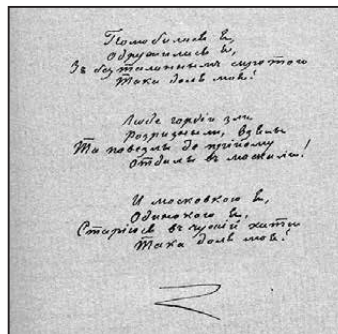 Полюбилася я,
Одружилася я,
Зъ безталаннымъ сиротою
Така доля моя!
Люде гордіи зли
Розризнылы, взялы
Та повезлы до прийому
Отдалы въ москали!
И московкою я,
Одинокою я,
Старіюсь въ чужій хати
Така доля моя!